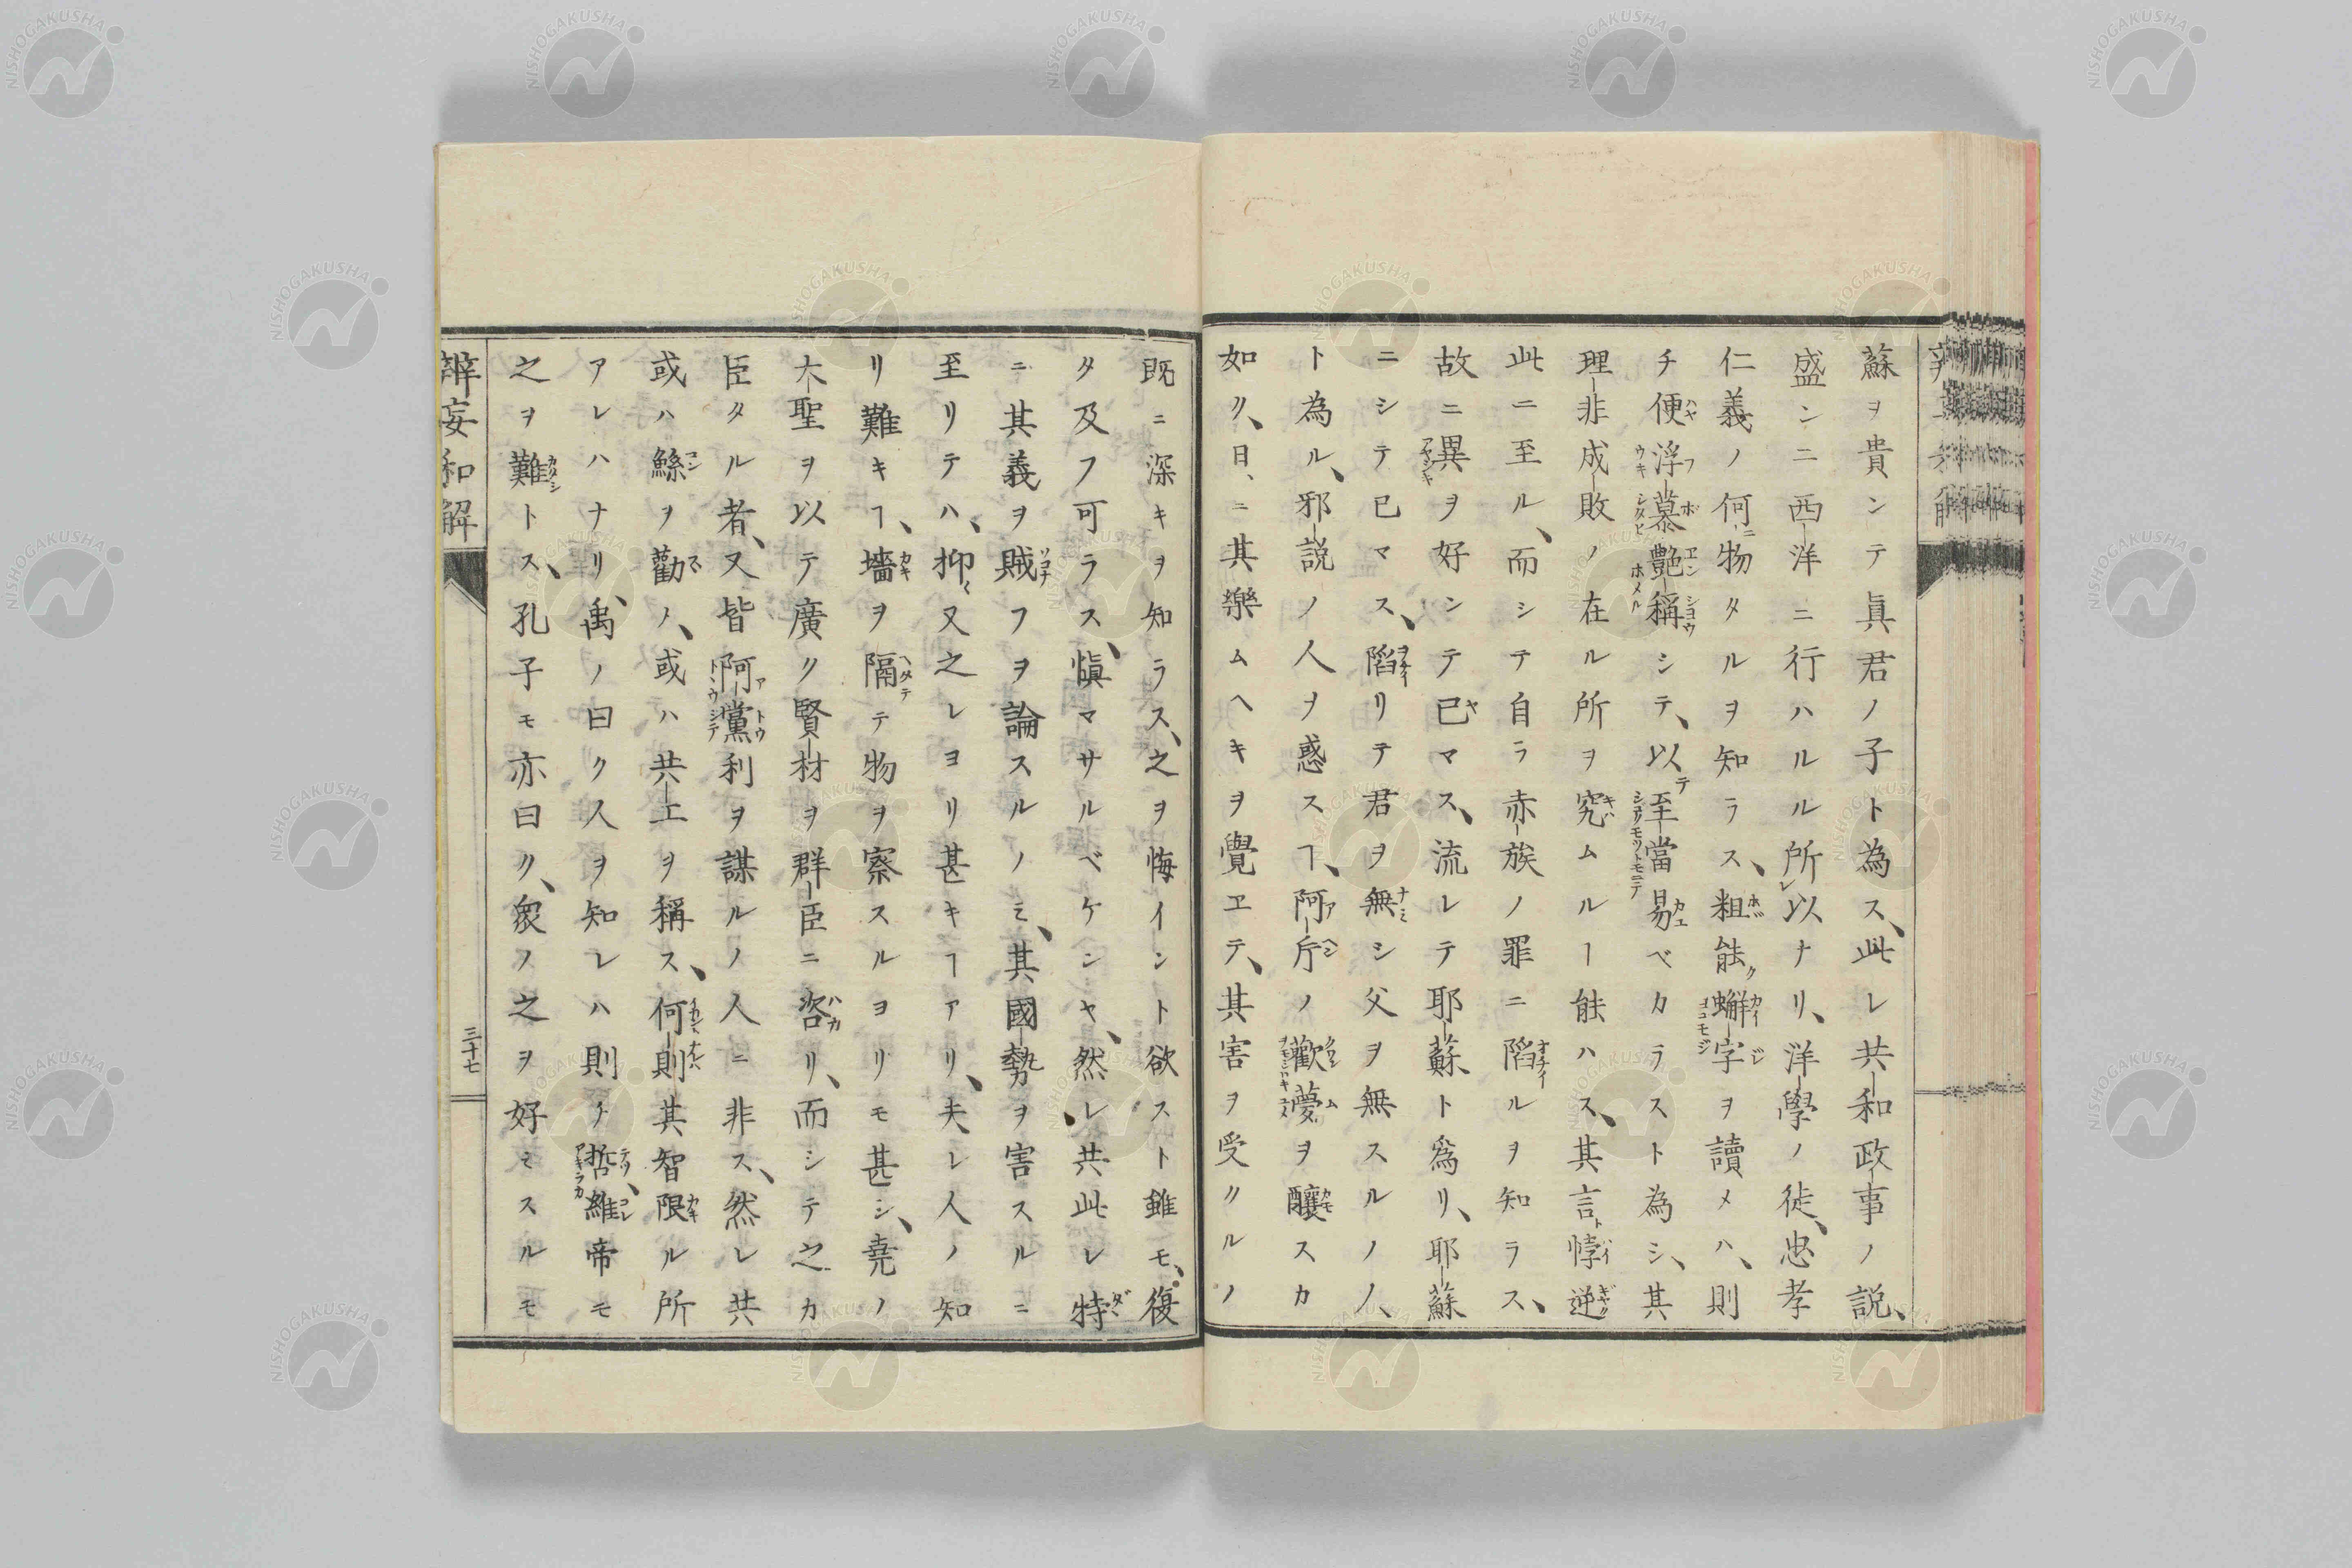 蘇ヲ貴ンテ眞君ノ子ト為ス、此レ共和政事ノ説、
盛ンニ西洋ニ行ハルル所以ナリ、洋學ノ徒、忠孝
仁義ノ何物タルヲ知ラス、粗能ク蠏字ヲ讀メハ、則
チ便浮慕艶稱シテ、以テ至當易ベカラスト為シ、其
理非成敗ノ在ル所ヲ究ムルヿ能ハス、其言ト悖逆
此ニ至ル、而シテ自ラ赤族ノ罪ニ陷ルヲ知ラス、
故ニ異ヲ好ンテ已マス、流レテ耶蘇ト爲リ、耶蘇
ニシテ已マス、陷リテ君ヲ無シ父ヲ無スルノ人
ト為ル、邪説ノ人ヲ惑スヿ、阿片ノ歡夢ヲ釀スカ
如ク、日ニ其樂ムヘキヲ覺ヱテ、其害ヲ受クルノ
既ニ深キヲ知ラス、之ヲ悔イント欲スト雖モ、復
タ及フ可ラス、愼マサルベケンヤ、然レ共此レ特
ニ其義ヲ賊フヲ論スルノミ、其國勢ヲ害スルニ
至リテハ、抑又之レヨリ甚キヿアリ、夫レ人ノ知
リ難キヿ、墻ヲ隔テ物ヲ察スルヨリモ甚シ、堯ノ
大聖ヲ以テ廣ク賢材ヲ群臣ニ咨リ、而シテ之カ
臣タル者、又皆阿黨利ヲ謀ルノ人ニ非ス、然レ共
或ハ鯀ヲ勸メ、或ハ共工ヲ稱ス、何則其智限ル所
アレハナリ、禹ノ曰ク人ヲ知レハ則チ哲、維帝モ
之ヲ難トス、孔子モ亦曰ク、衆ノ之ヲ好ミスルモ
辨妄和解
三十七
NISHOGAKUSHA